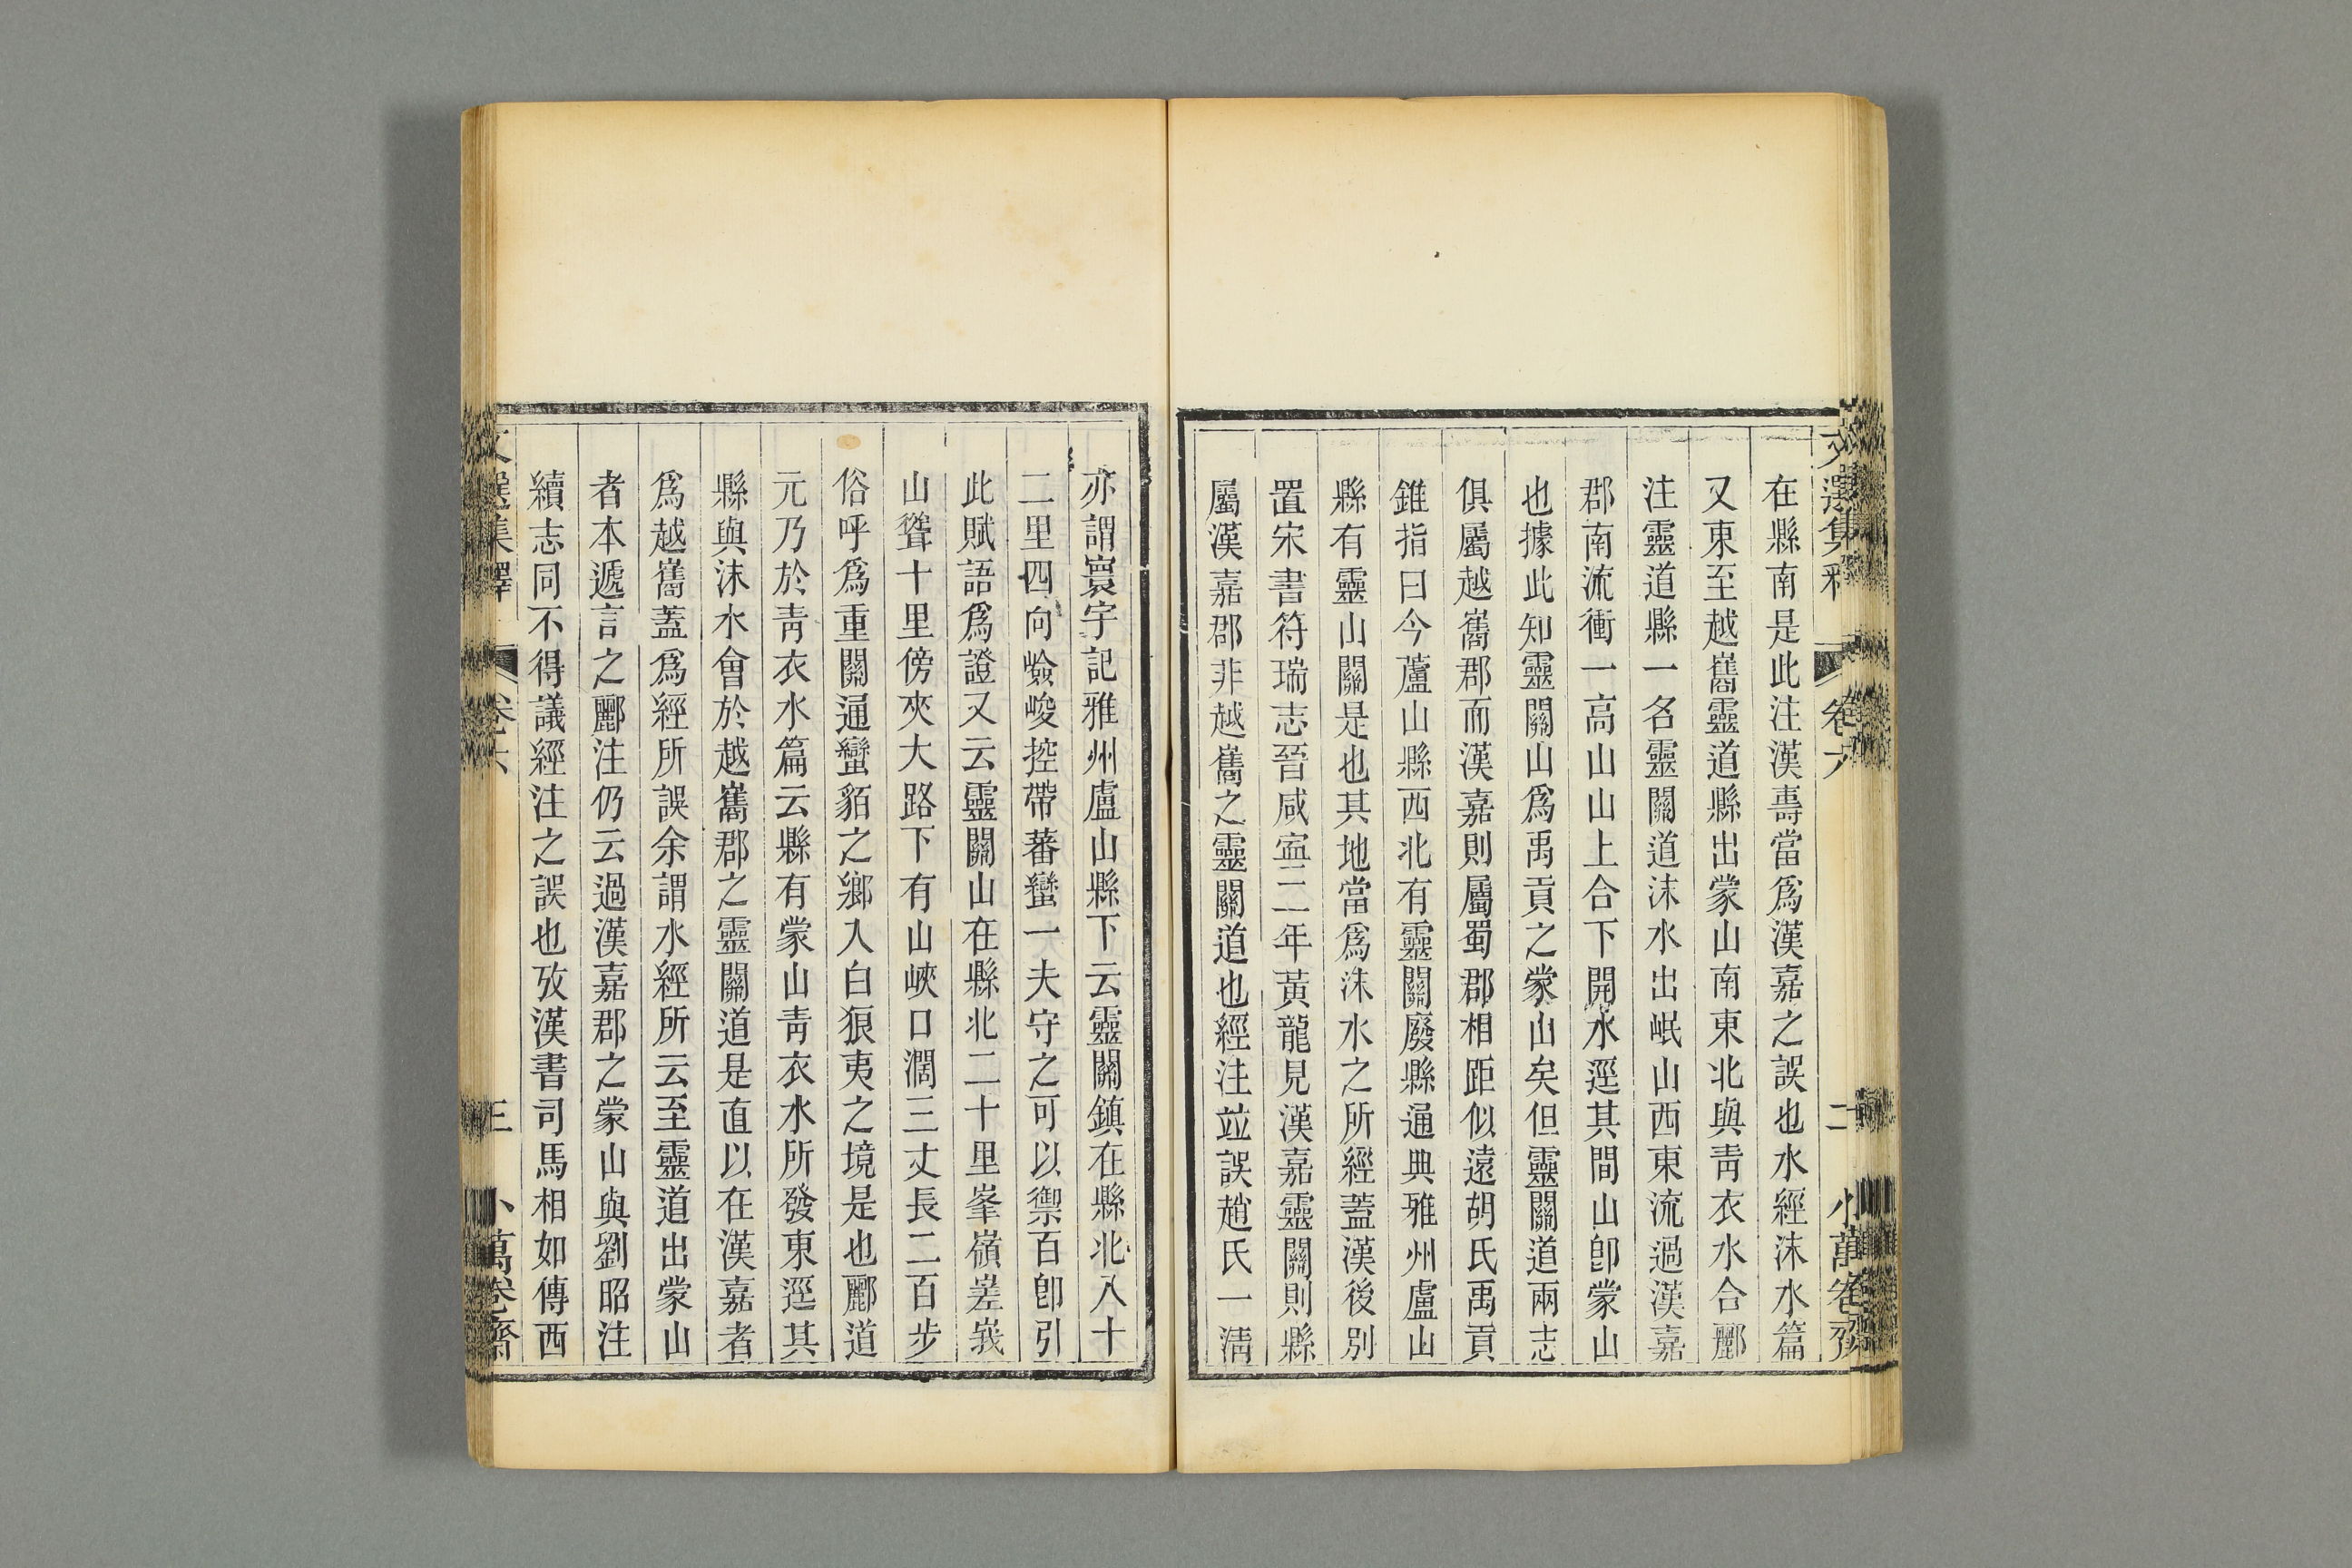 文選集釋 卷六 二 小萬卷齋
在縣南是此注漢壽當爲漢嘉之誤也水經沫水篇
又東至越嶲靈道縣出蒙山南東北與青衣水合酈
注靈道縣一名靈關道沫水出岷山西東流過漢嘉
郡南流衝一高山山上合下開水逕其間山卽蒙山
也據此知靈關山爲禹貢之蒙山矣但靈關道兩志
俱屬越嶲郡而漢嘉則屬蜀郡相距似遠胡氏禹貢
錐指曰今蘆山縣西北有靈關廢縣通典雅州盧山
縣有靈山關是也其地當爲沫水之所經蓋漢後別
置宋書符瑞志晉咸寍二年黃龍見漢嘉靈關則縣
屬漢嘉郡非越嶲之靈關道也經注竝誤趙氏一淸
亦謂寰宇記雅州盧山縣下云靈關鎮在縣北八十
二里四向嶮峻控帶蕃蠻一夫守之可以禦百卽引
此賦語爲證又云靈關山在縣北二十里峯嶺嵳峩
山聳十里傍夾大路下有山峽口濶三丈長二百步
俗呼爲重關通蠻貊之鄉入白狼夷之境是也酈道
元乃於青衣水篇云縣有蒙山青衣水所發東逕其
縣與沫水會於越嶲郡之靈關道是直以在漢嘉者
爲越嶲蓋爲經所誤余謂水經所云至靈道出蒙山
者本遞言之酈注仍云過漢嘉郡之蒙山與劉昭注
續志同不得議經注之誤也攷漢書司馬相如傳西
文選集釋 卷六 三 小萬卷齋